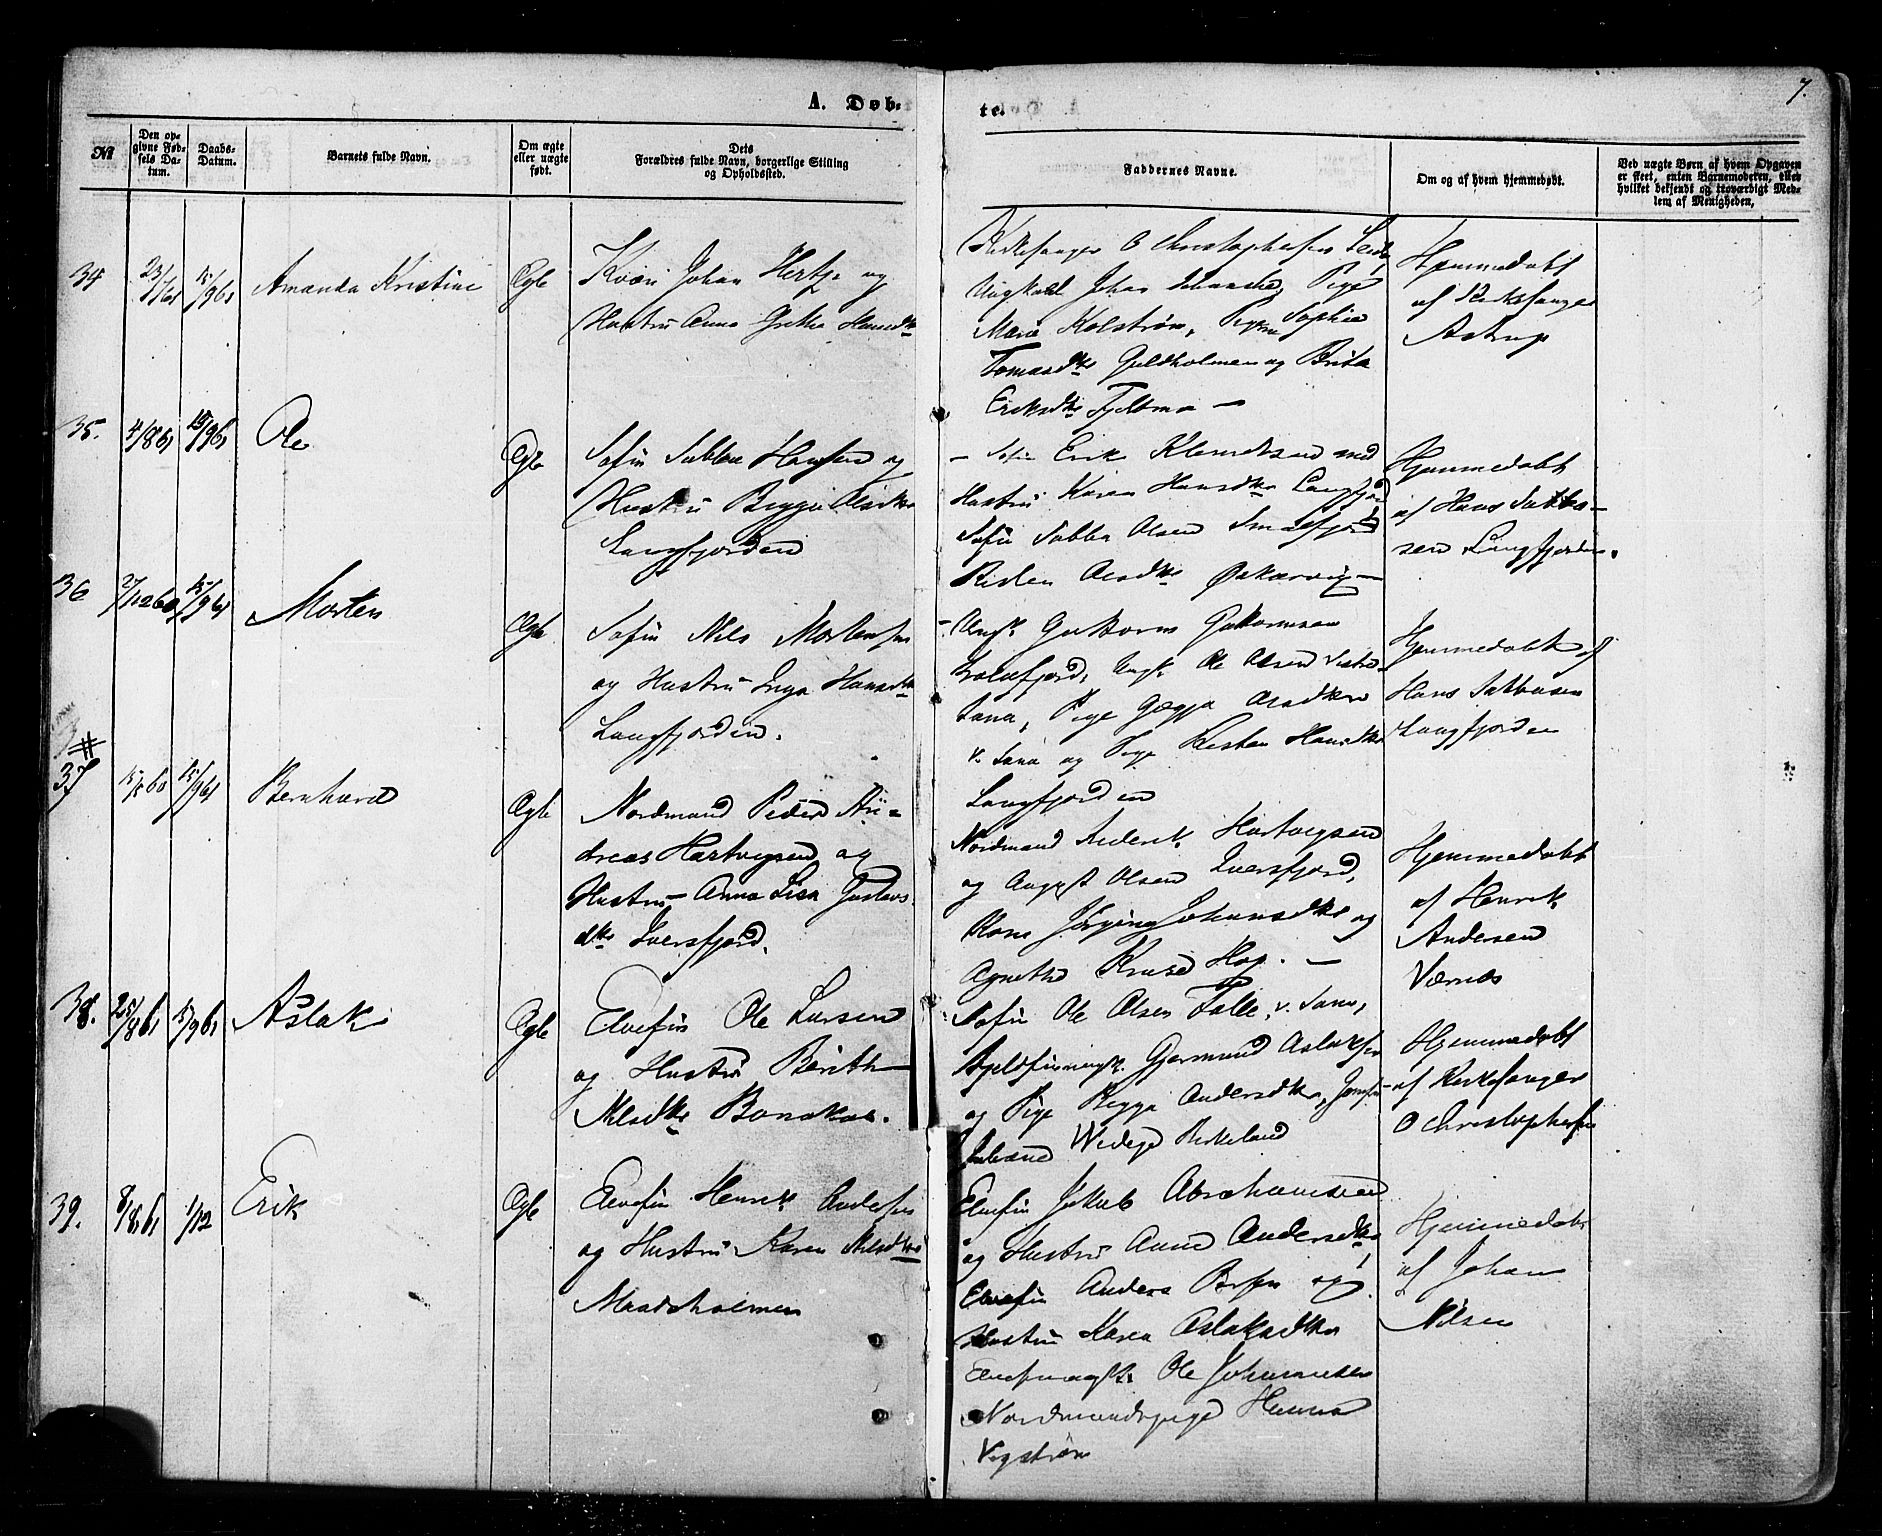 7.
A. Døb-
te.
№
Den op-
givne Fød-
sels Da-
tum.
Daabs-
Datum.
Barnets fulde Navn.
Om ægte
eller uægte
født.
Dets
Forældres fulde Navn, borgerlige Stilling
og Opholdssted.
Faddernes Navne.
Om og af hvem hjemmedøbt.
Ved uægte Børn af hvem Opgaven
er skeet, enten Barnemoderen, eller
hvilket bekjendt og troværdigt Med-
lem af Menigheden.
34
23/
15/961
Amanda Kristine
Ægte
Kvæn Johan Hertze og
Hustru Anna Grethe
Kirkesanger O Christophersen
Ungkarl Johan Pige
Maria Kolström, Sophie
Tomasdtr Guldholmen og Brita
Eriksdtr Fjeldma —
Hjemmedøbt
af Kirkesanger
Astrup
35.
4/861
15/961
Ole
Ægte
Søfin Sabba Hansen og
Hustru Bigga Olsdtr
Langfjorden
— Søfin Erik Klemetsen med
Hustru Karen Hansdtr Langfjord
Søfin Sabba Olsen Smalfjord
Kisten Olsdtr —
Hjemmedøbt
af Hans Sabba-
sen Langfjorden.
36
27/1260
15/961
Morten
Ægte
Søfin Nils Mortensen
og Hustru Inga Hansdtr
Langfjorden.
— Ungk. Guttorm Guttormsen
Ungk. Ole Olsen Vestre
Tana, Pige Gagga Olsdtr
v. Tana og Pige Kisten Hansdtr
Langfjorden
Hjemmedøbt af
Hans Sabbasen
Langfjorden
37
15/961
Bernhard
Ægte
Nordmand Peder An-
dreas Hartvigsen og
Hustru Anna Lisa Gustavs
dtr Iversfjord.
Nordmand Hartvigsen
og August Olsen Iversfjord,
Kone Johansdtr og
Agnethe Kruse Hop. —
Hjemmedøbt
af Henrik
Andersen
Værnes
38.
25/861
15/961
Aslak
Ægte
Elvefin Ole Larsen
og Hustru Berith
Nilsdtr Bonakas.
Søfin Ole Olsen v. Tana,
Fjeldfinungk. Gjermund Aslaksen
og Pige Bigga Andersdtr, Jomfru
Juliane Wedege Birkeland
Hjemmedøbt
af Kirkesanger
O Christophersen
39.
8/861
1/12
Erik
Ægte
Elvefin Henrik Andersen
og Hustru Karen Nilsdtr
Maadsholmen
Elvefin Jakob Abrahamsen
og Hustru Anne Andersdtr,
Elvefin Anders og
Hustru Karen Aslaksdtr
Elvefinungk. Ole Johannesen
Nordmandspige Hanna
Vigström
Hjemmedøbt
af Johan
Nilsen